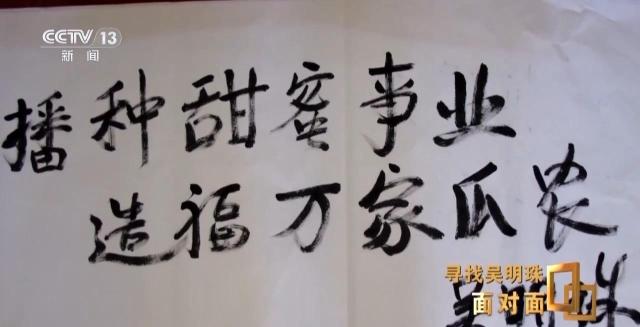 CCTV 13
新闻
播种甜蜜事业
造福万家瓜农
寻找吴明珠
面对面